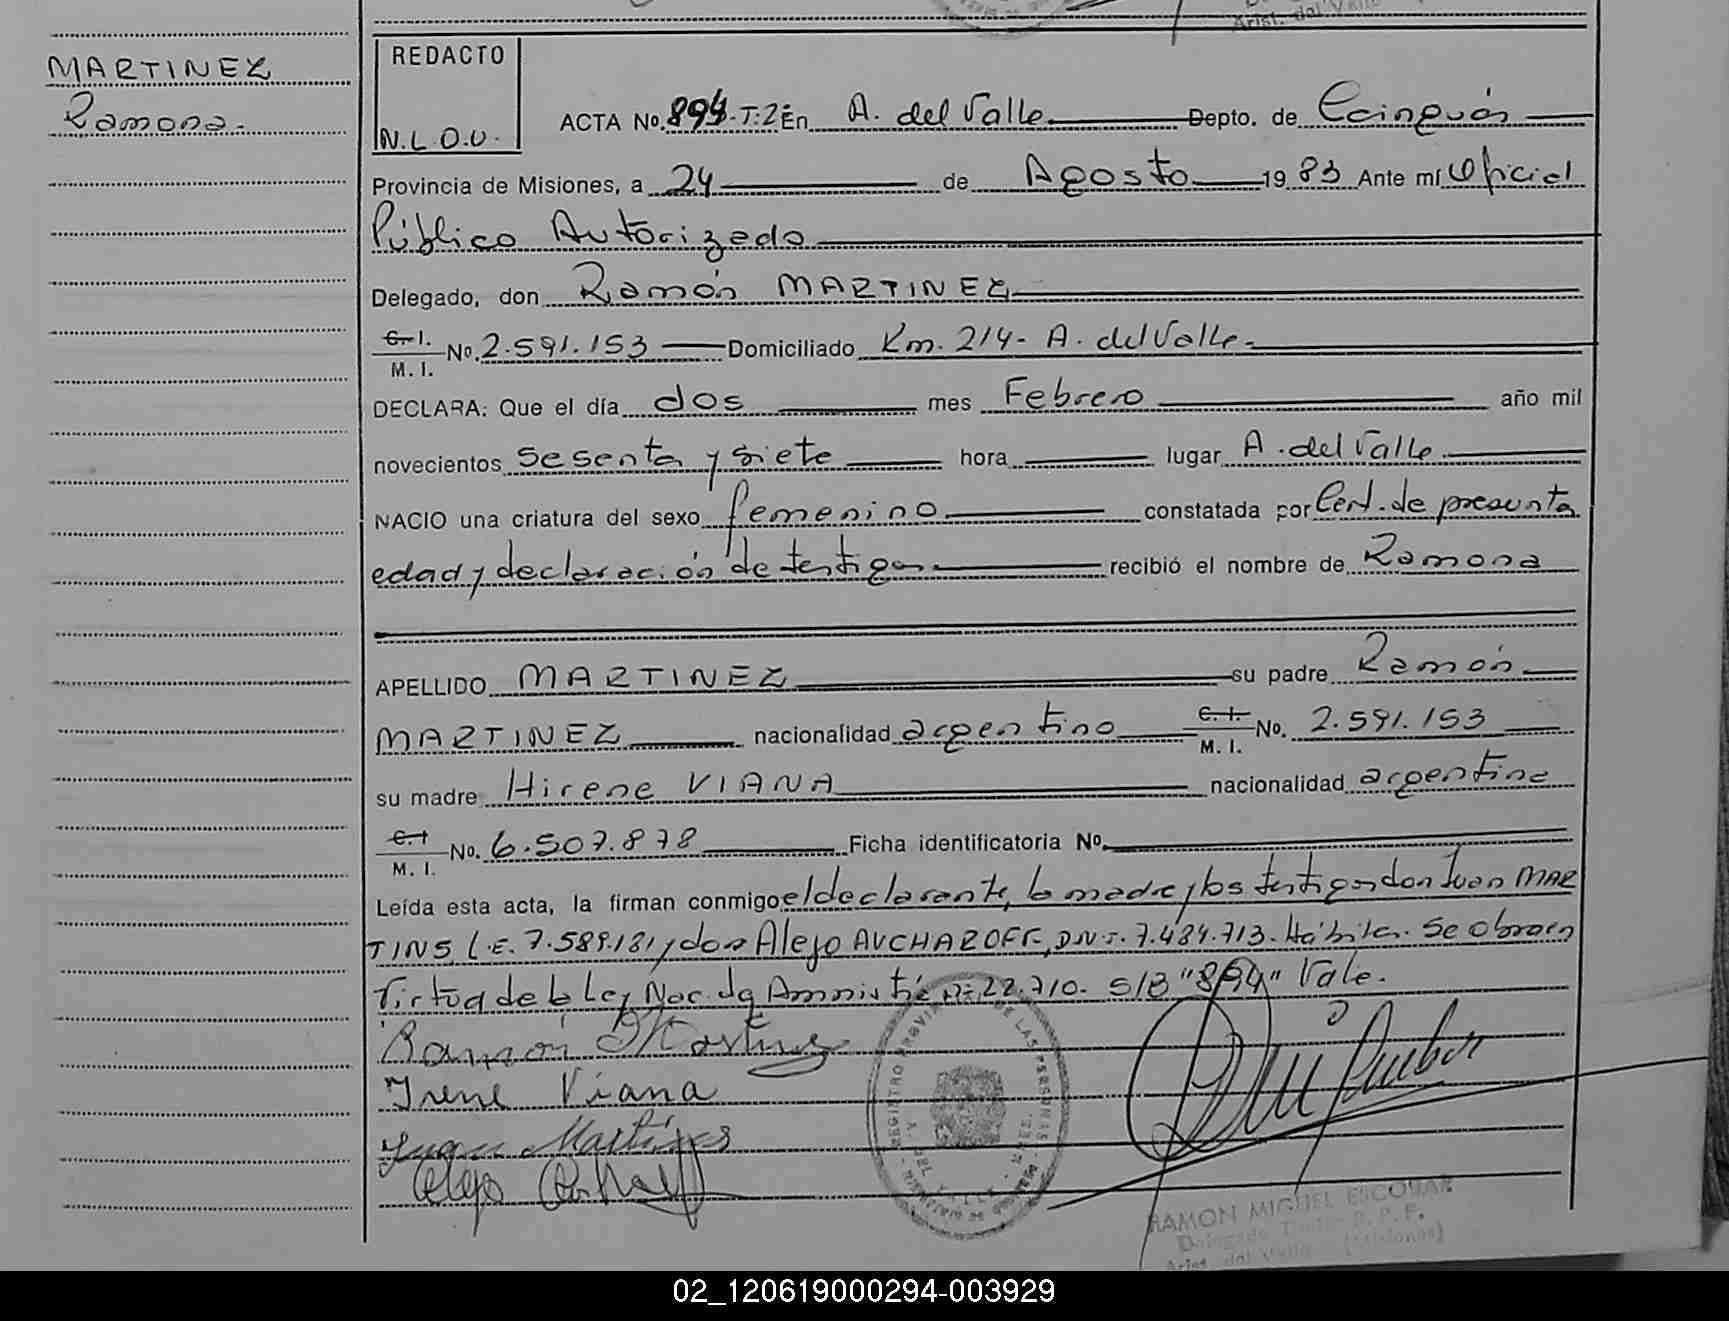 Arist. del Valle
MARTINEZ
Ramona.-
REDACTO
N.L.O.V.
ACTA No. 894-T:2º En A. del Valle Depto. de Cainguás
Provincia de Misiones, a 24 de Agosto 1983 Ante mí Oficial
Público Autorizado
Delegado, don Ramón MARTINEZ
C. I. M. I. No. 2.591.153 Domiciliado Km. 214- A. del Valle.-
DECLARA: Que el día dos mes Febrero año mil
novecientos sesenta y siete hora lugar A. del Valle.
NACIO una criatura del sexo femenino constatada por Cert. de presunta
edad y declaración de testigos recibió el nombre de Ramona
APELLIDO MARTINEZ su padre Ramón
MARTINEZ nacionalidad argentino C. I. M. I. No. 2.591.153
su madre Hirene VIANA nacionalidad argentina
C. I M. I. No. 6.507.878 Ficha identificatoria No.
Leída esta acta, la firman conmigo el declarante, la madre y los testigos don Juan MAR
TINS, L.E. 7.589.181 y don Alejo AVCHAROFF, D.N.I. 7.484.713. Hábiles. Se obra en
Virtud de la Ley Nac. de Amnistía nº 22.710. S/B "894" Vale.
Ramón Martinez
Irene Viana
Juan Martines
Alejo
REGISTRO PROVINCIAL DE LAS PERSONAS
A. DEL VALLE
RAMON MIGUEL ESCOBAR
Delegado Titular R. P. F.
Arist. del Valle (Misiones)
02_120619000294-003929